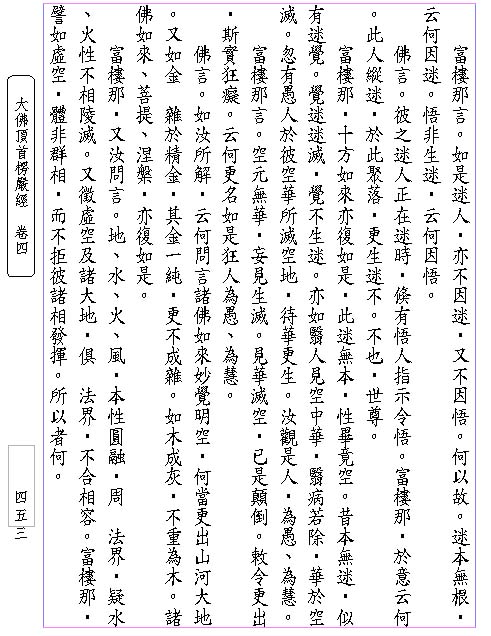 富樓那言。如是迷人，亦不因迷，又不因悟。何以故。迷本無根，
云何因迷。悟非生迷，云何因悟。
佛言。彼之迷人正在迷時，倏有悟人指示令悟。富樓那，於意云何
。此人縱迷，於此聚落，更生迷不。不也，世尊。
富樓那，十方如來亦復如是，此迷無本，性畢竟空。昔本無迷，似
有迷覺。覺迷迷滅，覺不生迷。亦如翳人見空中華，翳病若除，華於空
滅。忽有愚人於彼空華所滅空地，待華更生。汝觀是人，為愚、為慧。
富樓那言。空元無華，妄見生滅。見華滅空，已是顛倒。敕令更出
，斯實狂癡。云何更名如是狂人為愚、為慧。
佛言。如汝所解，云何問言諸佛如來妙覺明空，何當更出山河大地
。又如金 雜於精金，其金一純，更不成雜。如木成灰，不重為木。諸
佛如來、菩提、涅槃，亦復如是。
富樓那，又汝問言。地、水、火、風，本性圓融，周 法界，疑水
、火性不相陵滅。又徵虛空及諸大地，俱 法界，不合相容。富樓那，
譬如虛空，體非群相，而不拒彼諸相發揮。所以者何。
大佛頂首楞嚴經 卷四
四五三